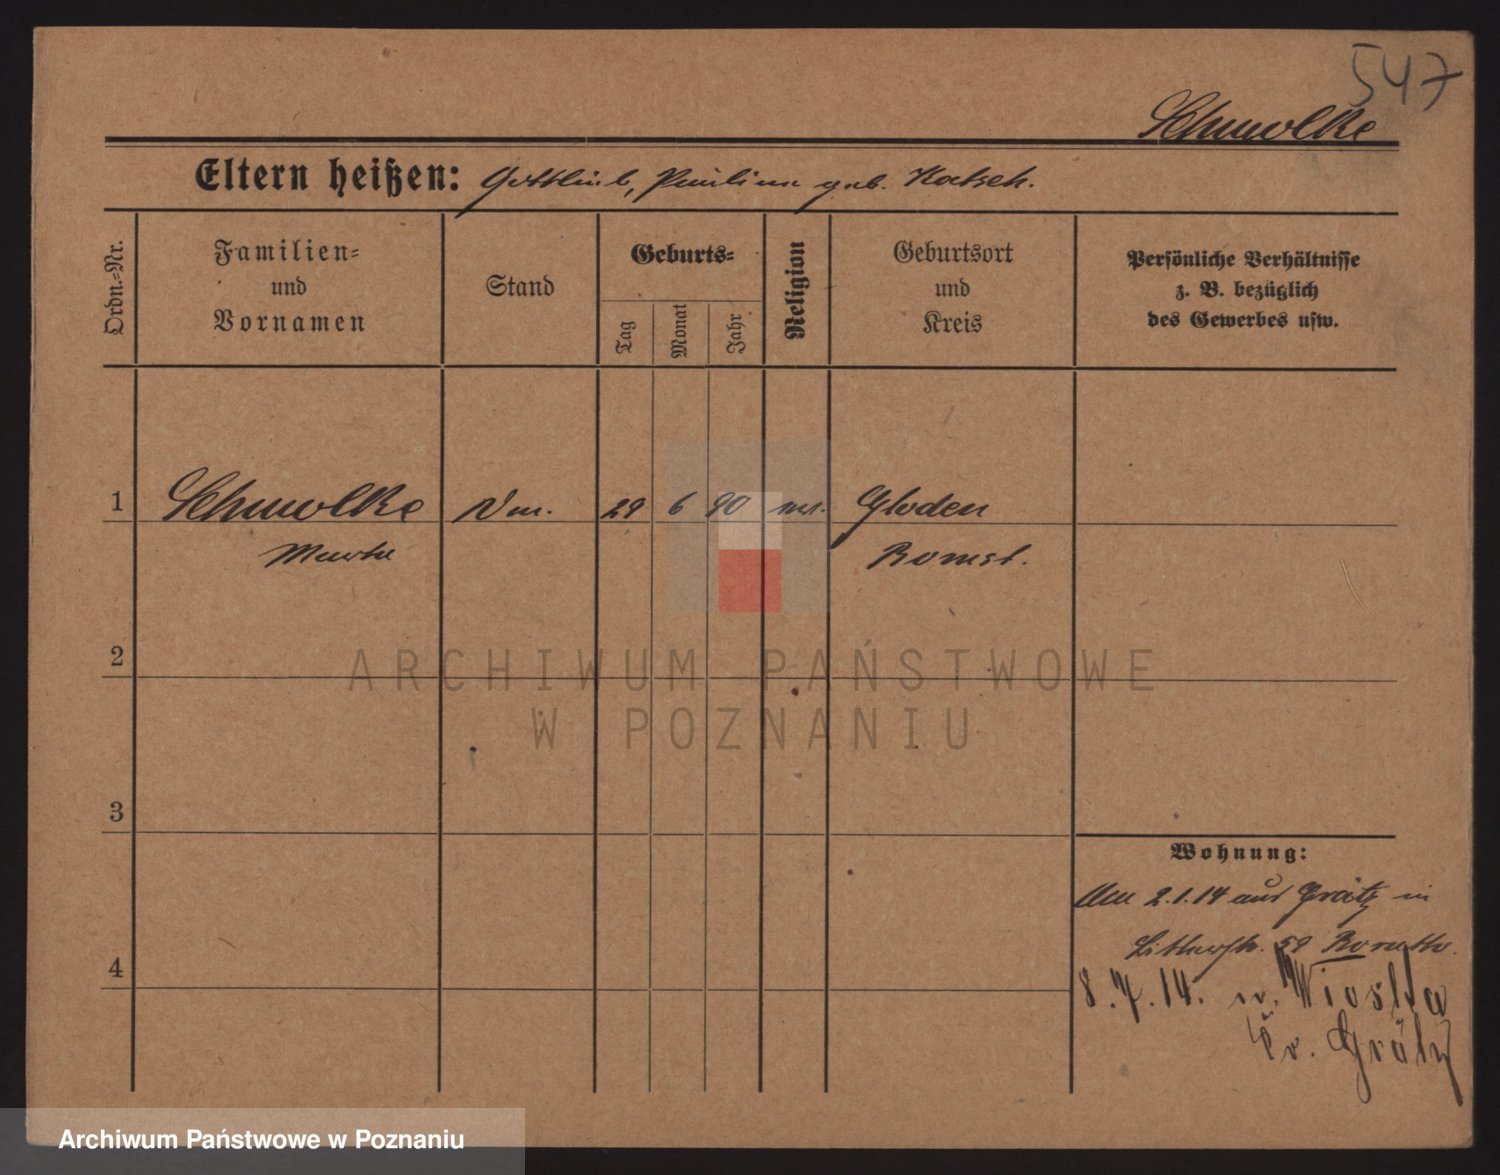 547
Schmolke
Eltern heißen: Gottlieb, Pauline geb.
Ordn.-Nr.
Familien-
und
Vornamen
Stand
Geburts-
Tag
Monat
Jahr
Religion
Geburtsort
und
Kreis
Persönliche Verhältnisse
z. B. bezüglich
des Gewerbes usw.
1
Schmolke 29 6 90 Gloden
Bomst.
2
ARCHIWUM PAŃSTWOWE
W POZNANIU
3
Wohnung:
Am 2.1.14 aus Grätz in
4
8.7.14. n.
Kr. Grätz
Archiwum Państwowe w Poznaniu